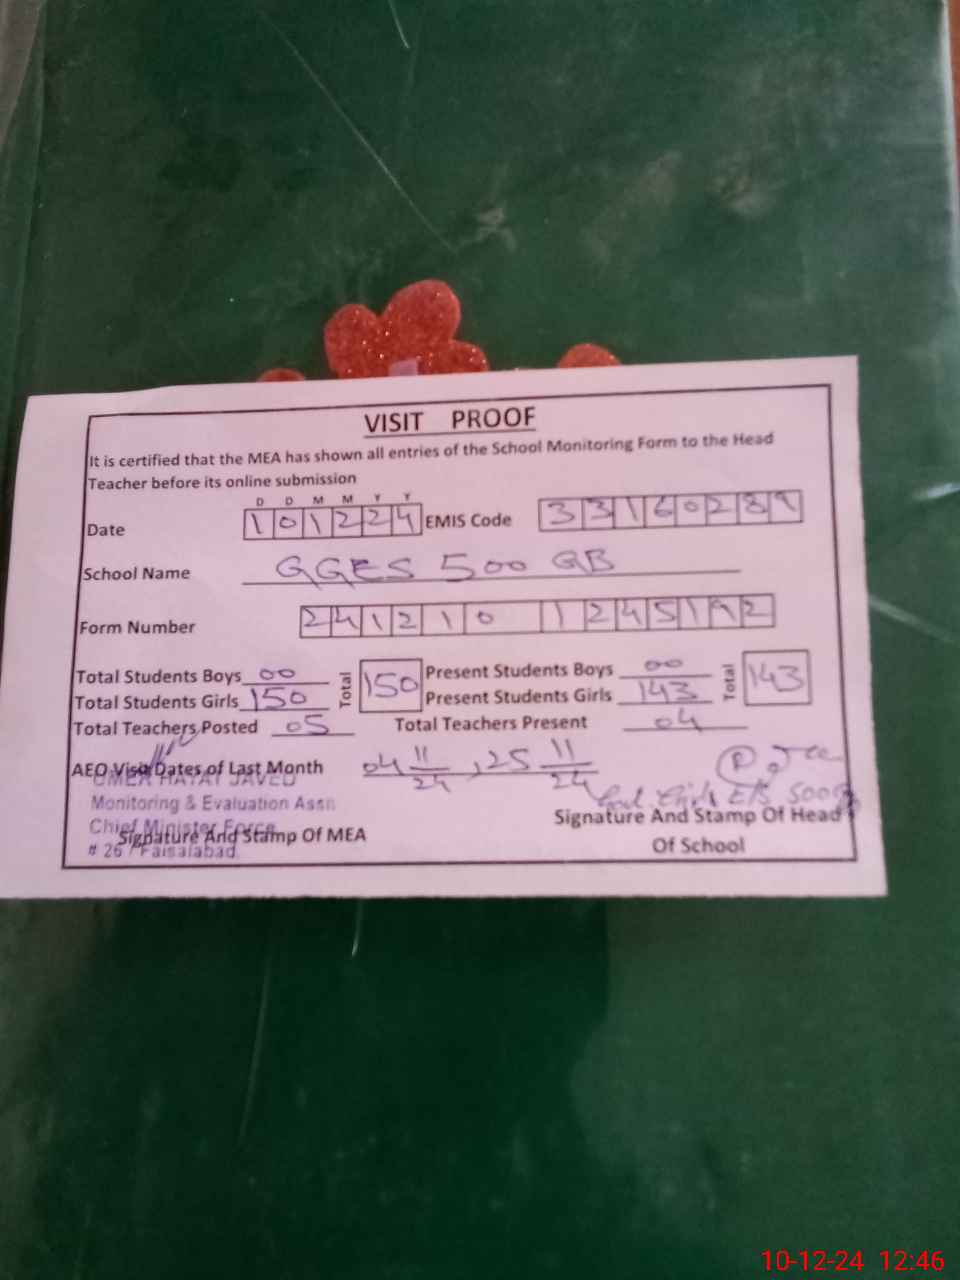 VISIT PROOF
It is certified that the MEA has shown all entries of the School Monitoring Form to the Head
Teacher before its online submission
D D M M Y Y
Date 101224 EMIS Code 33160289
School Name GGES 500 GB
Form Number 241210 1245192
Total Students Boys 00 Total 150 Present Students Boys 00 Total 143
Total Students Girls 150 Present Students Girls 143
Total Teachers Posted 05 Total Teachers Present 04
AEO Visit Dates of Last Month 04 11/24, 25 11/24
UMER HAYAT JAVED
Monitoring & Evaluation Asstt
Chief Minister Force
Signature And Stamp Of MEA
# 26 / Faisalabad.
Govt. Girls E/S 500GB
Signature And Stamp Of Head
Of School
10-12-24 12:46